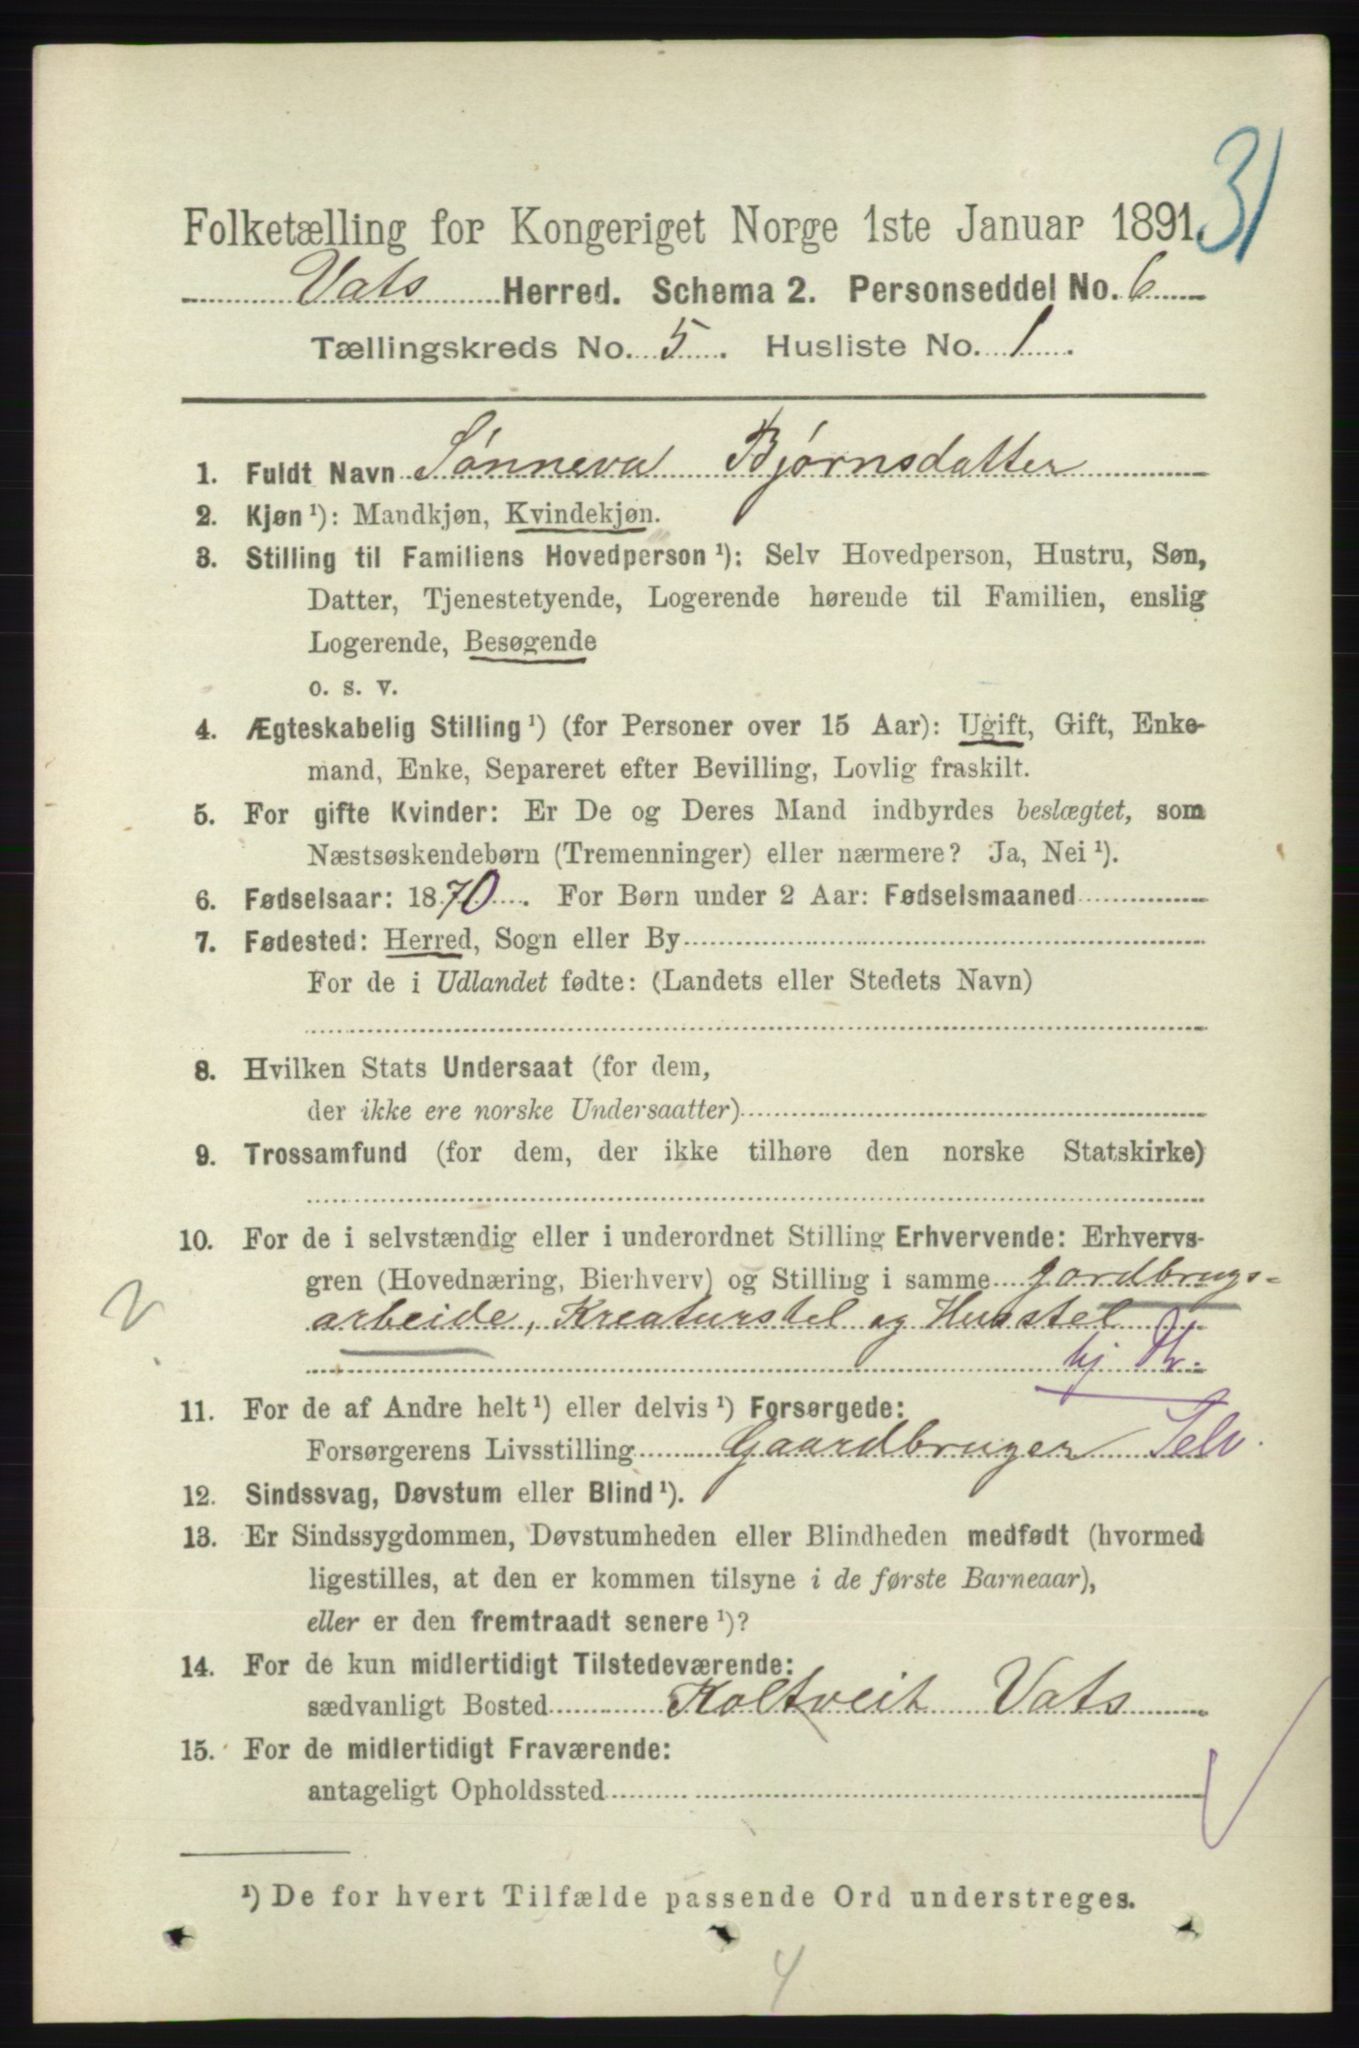 31
Folketælling for Kongeriget Norge 1ste Januar 1891.
Vats Herred. Schema 2. Personseddel No. 6
Tællingskreds No. 5. Husliste No. 1.
1. Fuldt Navn Sønneva Bjørnsdatter
2. Kjøn ¹): Mandkjøn, Kvindekjøn.
3. Stilling til Familiens Hovedperson ¹): Selv Hovedperson, Hustru, Søn,
Datter, Tjenestetyende, Logerende hørende til Familien, enslig
Logerende, Besøgende
o. s. v.
4. Ægteskabelig Stilling ¹) (for Personer over 15 Aar): Ugift, Gift, Enke-
mand, Enke, Separeret efter Bevilling, Lovlig fraskilt.
5. For gifte Kvinder: Er De og Deres Mand indbyrdes beslægtet, som
Næstsøskendebørn (Tremenninger) eller nærmere? Ja, Nei ¹).
6. Fødselsaar: 1870. For Børn under 2 Aar: Fødselsmaaned
7. Fødested: Herred, Sogn eller By
For de i Udlandet fødte: (Landets eller Stedets Navn)
8. Hvilken Stats Undersaat (for dem,
der ikke ere norske Undersaatter)
9. Trossamfund (for dem, der ikke tilhøre den norske Statskirke)
10. For de i selvstændig eller i underordnet Stilling Erhvervende: Erhvervs-
gren (Hovednæring, Bierhverv) og Stilling i samme Jordbrugs-
arbeide, Kreaturstel og Husstel
hj
11. For de af Andre helt ¹) eller delvis ¹) Forsørgede:
Forsørgerens Livsstilling Gaardbruger Selv.
12. Sindssvag, Døvstum eller Blind ¹).
13. Er Sindssygdommen, Døvstumheden eller Blindheden medfødt (hvormed
ligestilles, at den er kommen tilsyne i de første Barneaar),
eller er den fremtraadt senere ¹)?
14. For de kun midlertidigt Tilstedeværende:
sædvanligt Bosted Koltveit Vats
15. For de midlertidigt Fraværende:
antageligt Opholdssted
¹) De for hvert Tilfælde passende Ord understreges.
4